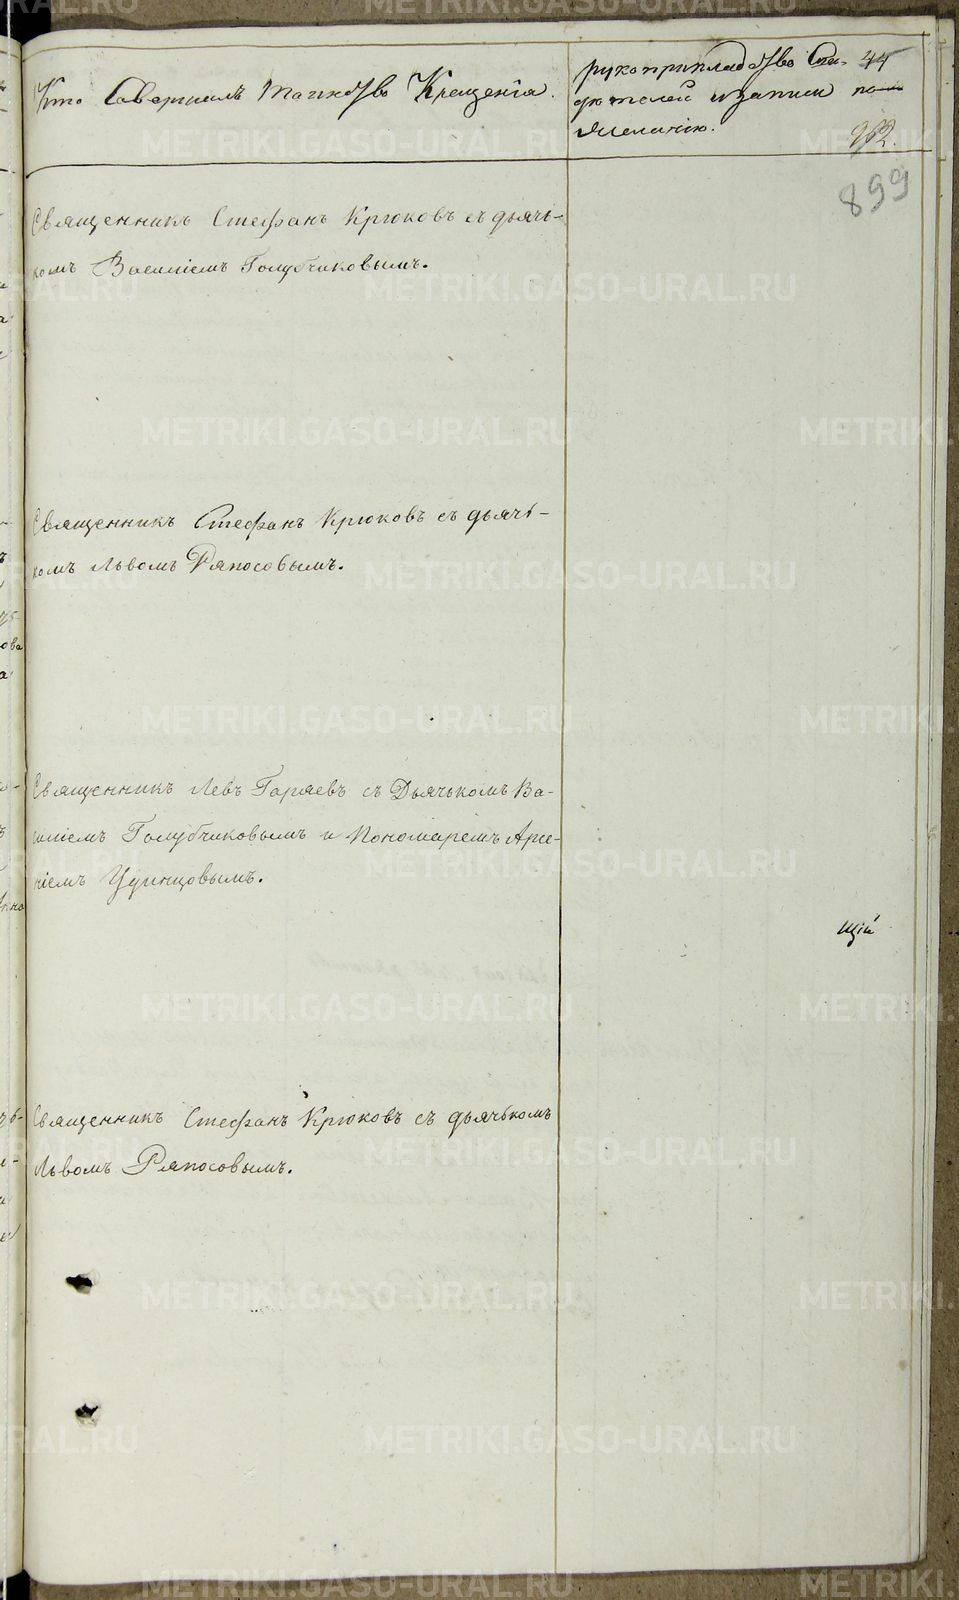 Кто Совершалъ Таинство Крещенія.
рукоприкладство Сви-
дѣтелей и записи по
желанію.
44
262.
899
Священникъ Стефанъ Крюковъ съ дьячь-
комъ Василіемъ Голубчиковымъ.
Священникъ Стефанъ Крюковъ съ дьячь-
комъ Львомъ Ряпосовымъ.
Священникъ Левъ Гаряевъ съ Дьячькомъ Ва-
силіемъ Голубчиковымъ и Пономаремъ Арсе-
ніемъ Удинцовымъ.
щій
Священникъ Стефанъ Крюковъ съ дьячькомъ
Львомъ Ряпосовымъ.
METRIKI.GASO-URAL.RU